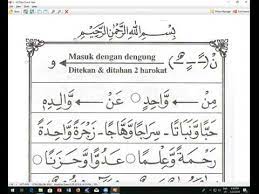 بِسْمِ اللهِ الرَّحْمٰنِ الرَّحِيْمِ
نْ (ــًـ ــٍـ ــٌـ) Masuk dengan dengung و
Ditekan & ditahan 2 harokat
مِنْ وَاحِدٍ ○ عَنْ وَالِدِهِ
حَبًّا وَّنَبَاتًا ○ سِرَاجًا وَّهَّاجًا ○ زَجْرَةٌ وَّاحِدَةٌ
رَحْمَةً وَّعِلْمًا ○ عَدُوًّا وَّحَزَنًا ○